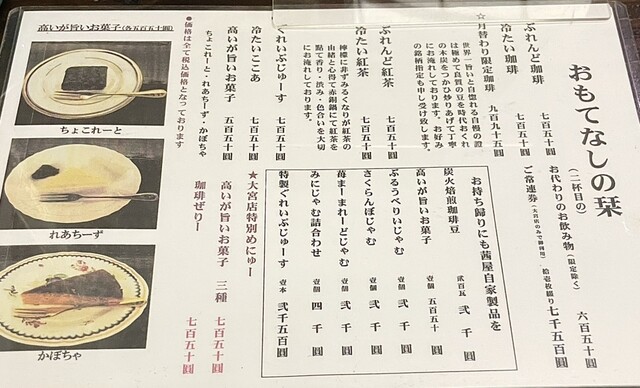 おもてなしの栞
(二杯目の)
お代わりのお飲み物(限定除く) 六百五十圓
ご常連券(大宮店のみで御利用) 拾壱枚綴り 七千五百圓
ぶれんど珈琲 七百五十圓
冷たい珈琲 七百五十圓
☆月替わり限定珈琲 九百九十五圓
世界一旨いと自惚れる自慢の證
は極めて良質の豆を時代おくれ
の木炭をつかひ炒りあげて丁寧
にお淹れしております。お好み
の銘柄指定も申し受け致します。
ぶれんど紅茶 七百五十圓
冷たい紅茶 七百五十圓
檸檬に非ずみるくなりが紅茶の
由緒と心得て赤銅鍋にて紅茶を
點て香り・渋み・色合いを大切
にお淹れしております。
ぶれいぷじゅーす 七百五十圓
冷たいここあ 七百五十圓
高いが旨いお菓子 五百五十圓
ちょこれーと・れあちーず・かぼちゃ
●価格は全て税込価格となっております
お持ち帰りにも茜屋自家製品を
炭火焙煎珈琲豆 貮百瓦 弐千圓
高いが旨いお菓子 壹個 五百五十圓
ぶるうべりいじゃむ 壹個 弐千圓
さくらんぼじゃむ 壹個 弐千圓
苺まーまれーどじゃむ 壹個 弐千圓
みにじゃむ詰合わせ 壹個 四千圓
特製ぐれいぷじゅーす 壹本 弐千五百圓
★大宮店特別めにゅー
高いが旨いお菓子 三種 七百五十圓
珈琲ぜりー 七百五十圓
高いが旨いお菓子(各五百五十圓)
ちょこれーと
れあちーず
かぼちゃ